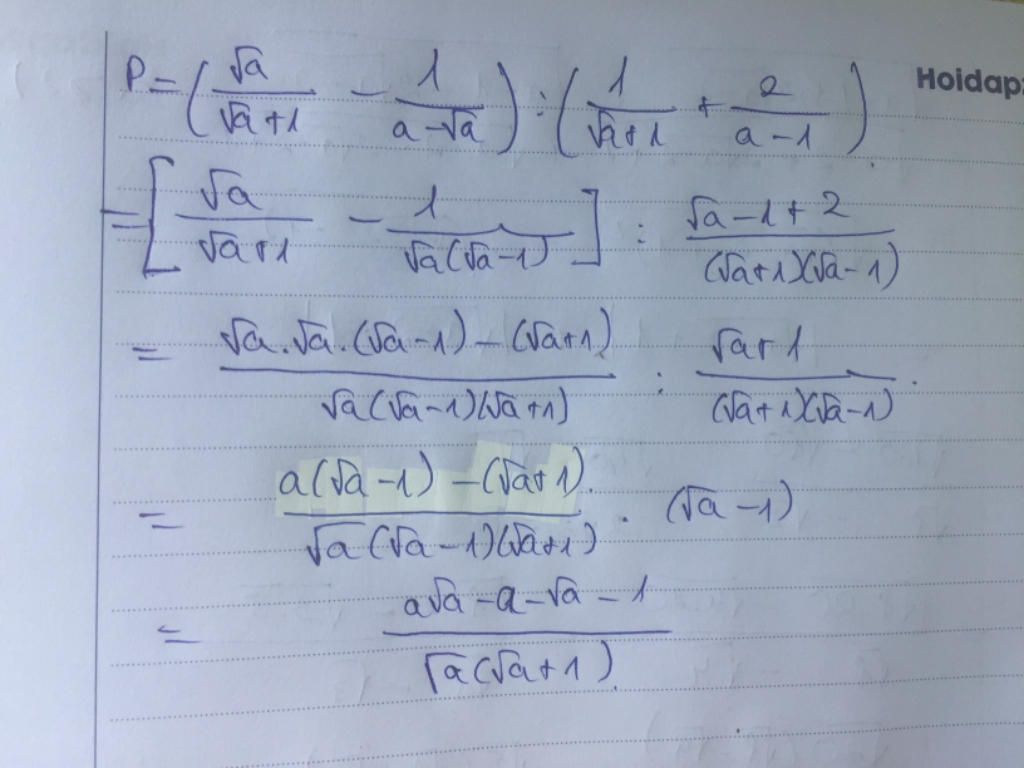 P = (√a/(√a+1) - 1/(a-√a)) : (1/(√a+1) + 2/(a-1)).
Hoidap
= [√a/(√a+1) - 1/(√a(√a-1))] : (√a-1+2)/((√a+1)(√a-1))
= (√a.√a.(√a-1) - (√a+1))/(√a(√a-1)(√a+1)) : (√a+1)/((√a+1)(√a-1)).
= (a(√a-1) - (√a+1))/(√a(√a-1)(√a+1)) . (√a-1)
= (a√a-a-√a-1)/(√a(√a+1)).